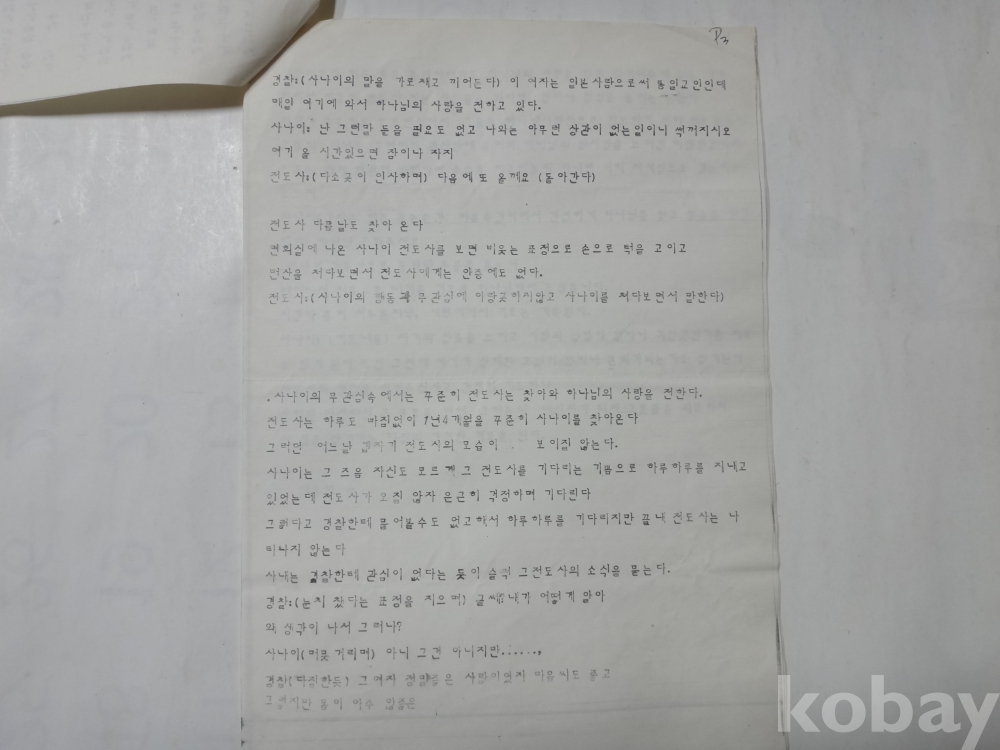 P3
경찰:(사나이의 말을 가로채고 끼어든다) 이 여자는 일본사람으로써 통일교인인데
매일 여기에 와서 하나님의 사랑을 전하고 있다.
사나이: 난 그런말 들을 필요도 없고 나와는 아무런 상관이 없는일이니 썩꺼지시오
여기 올 시간있으면 잠이나 자지
전도사:(다소곳이 인사하며) 다음에 또 올께요 (돌아간다)
전도사 다음날도 찾아 온다
면회실에 나온 사나이 전도사를 보면 비웃는 표정으로 손으로 턱을 고이고
먼산을 쳐다보면서 전도사에게는 안중에도 없다.
전도사:(사나이의 행동과 무관심에 아랑곳하지않고 사나이를 쳐다보면서 말한다)
.사나이의 무관심속에서는 꾸준히 전도사는 찾아와 하나님의 사랑을 전한다.
전도사는 하루도 빠짐없이 1년4개월을 꾸준히 사나이를 찾아온다
그러던 어느날 갑자기 전도사의 모습이 보이질 않는다.
사나이는 그 즈음 자신도 모르게 그 전도사를 기다리는 기쁨으로 하루하루를 지내고
있었는데 전도사가 오질 않자 은근히 걱정하며 기다린다
그렇다고 경찰한테 물어볼수도 없고해서 하루하루를 기다리지만 끝내 전도사는 나
타나지 않는다
사내는 경찰한테 관심이 없다는 듯이 슬쩍 그전도사의 소식을 묻는다.
경찰:(눈치 챘다는 표정을 지으며) 글쎄 내가 어떻게 알아
왜 생각이 나서 그러니?
사나이(머뭇거리며) 아니 그건 아니지만......,
경찰(다정한듯) 그여자 정말 좋은 사람이었지 마음씨도 좋고
그렇지만 몸이 아주
kobay